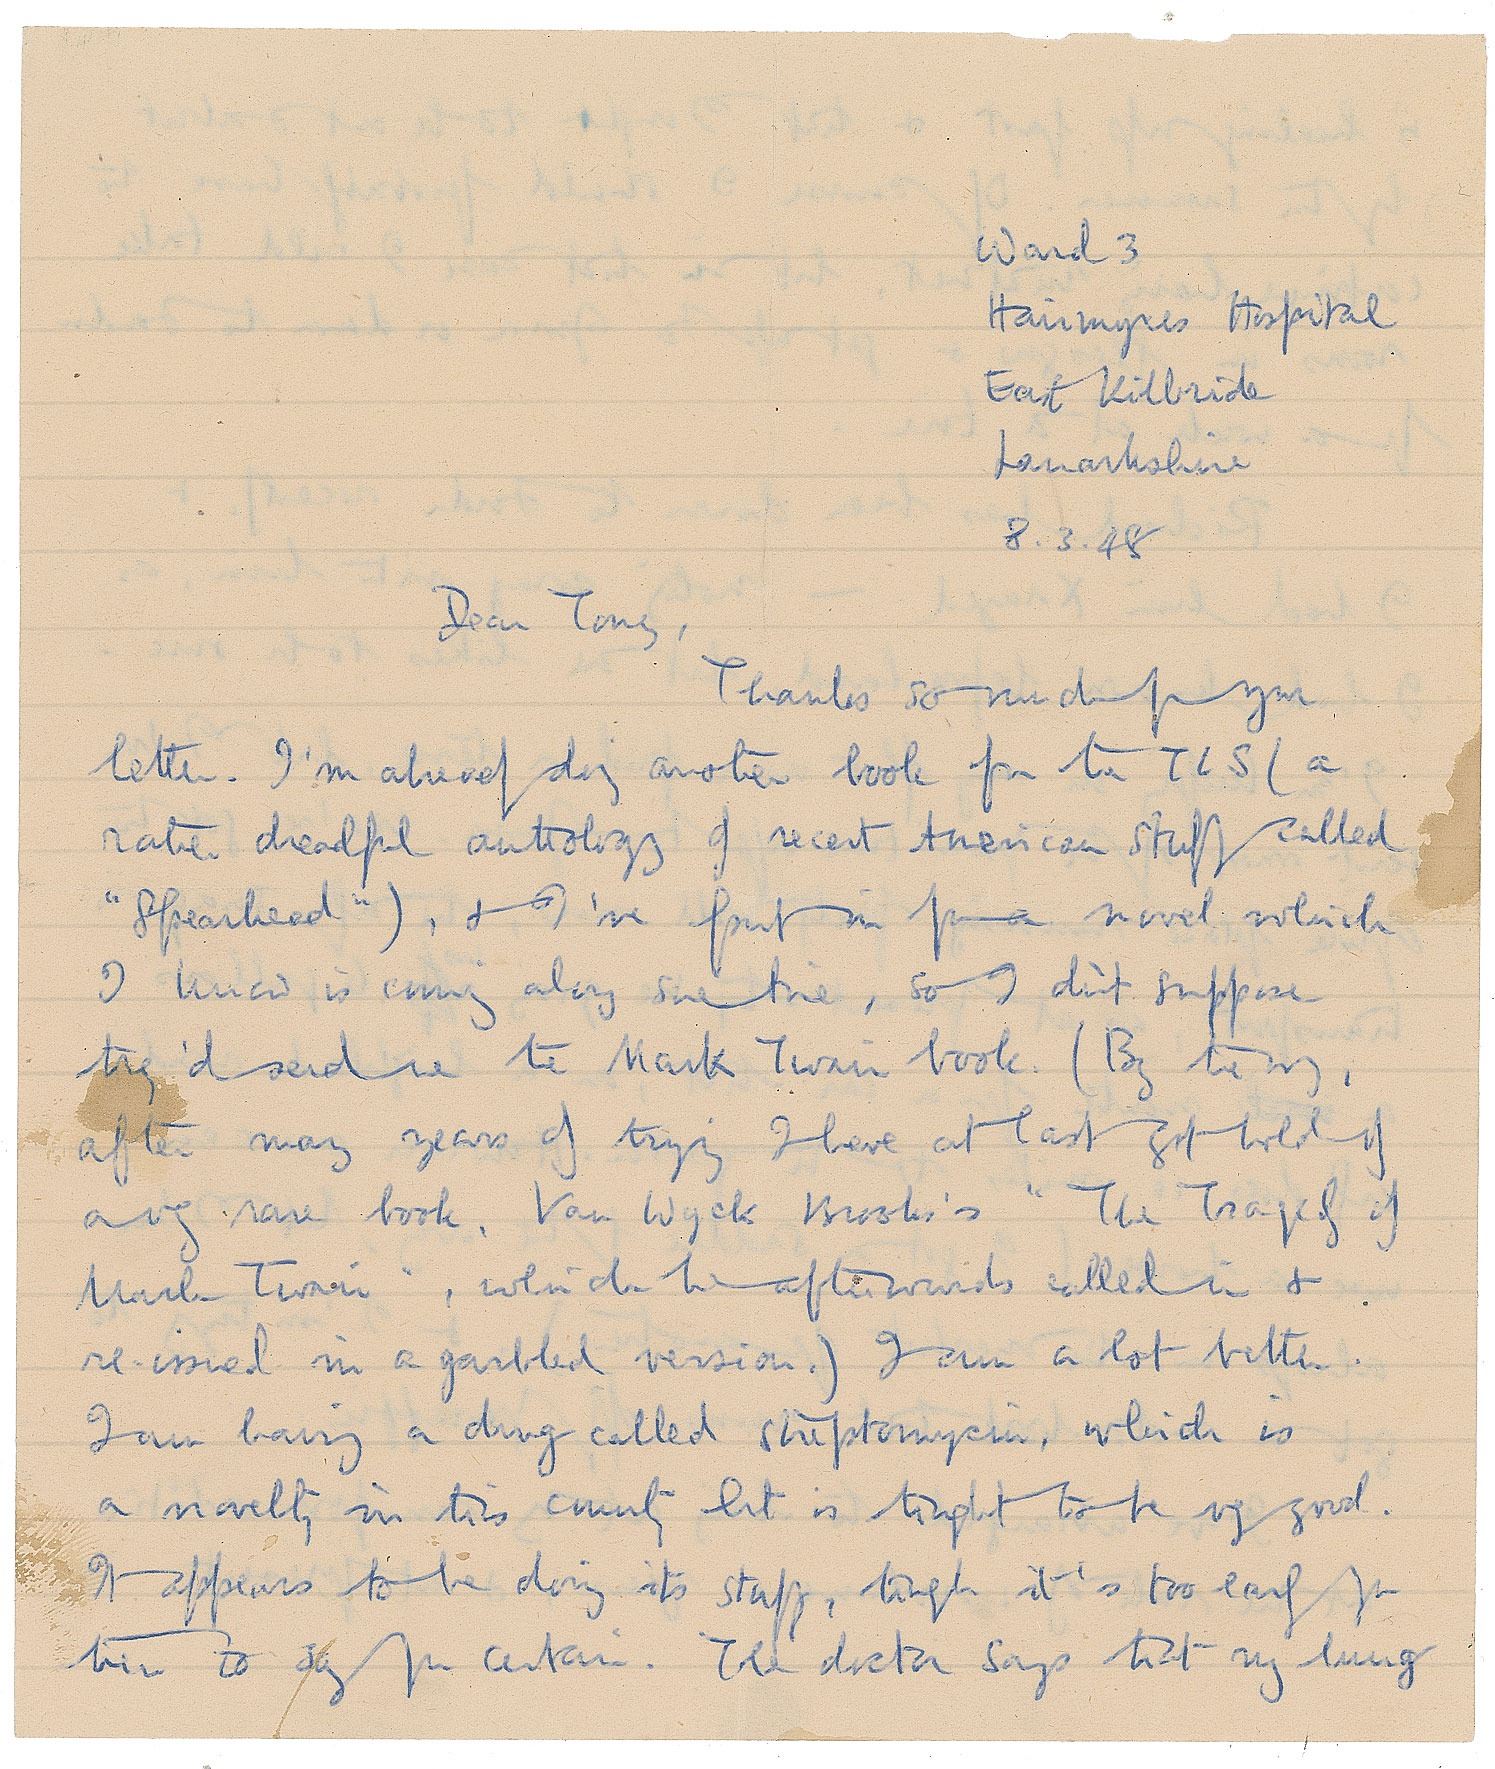 Ward 3
Hairmyres Hospital
East Kilbride
Lanarkshire
8.3.48
Dear Tony,
Thanks so much for your
letter. I'm already doing another book for the TLS (a
rather dreadful anthology of recent American stuff called
"Spearhead"), & I've put in for a novel which
I know is coming along some time, so I don't suppose
they'd send me the Mark Twain book. (By the way,
after many years of trying I have at last got hold of
a vy rare book, Van Wyck Brooks's "The Tragedy of
Mark Twain", which he afterwards called in &
re-issued in a garbled version.) I am a lot better.
I am having a drug called streptomycin, which is
a novelty in this country but is thought to be vy good.
It appears to be doing its stuff, though it's too early for
them to say for certain. The doctor says that my lung